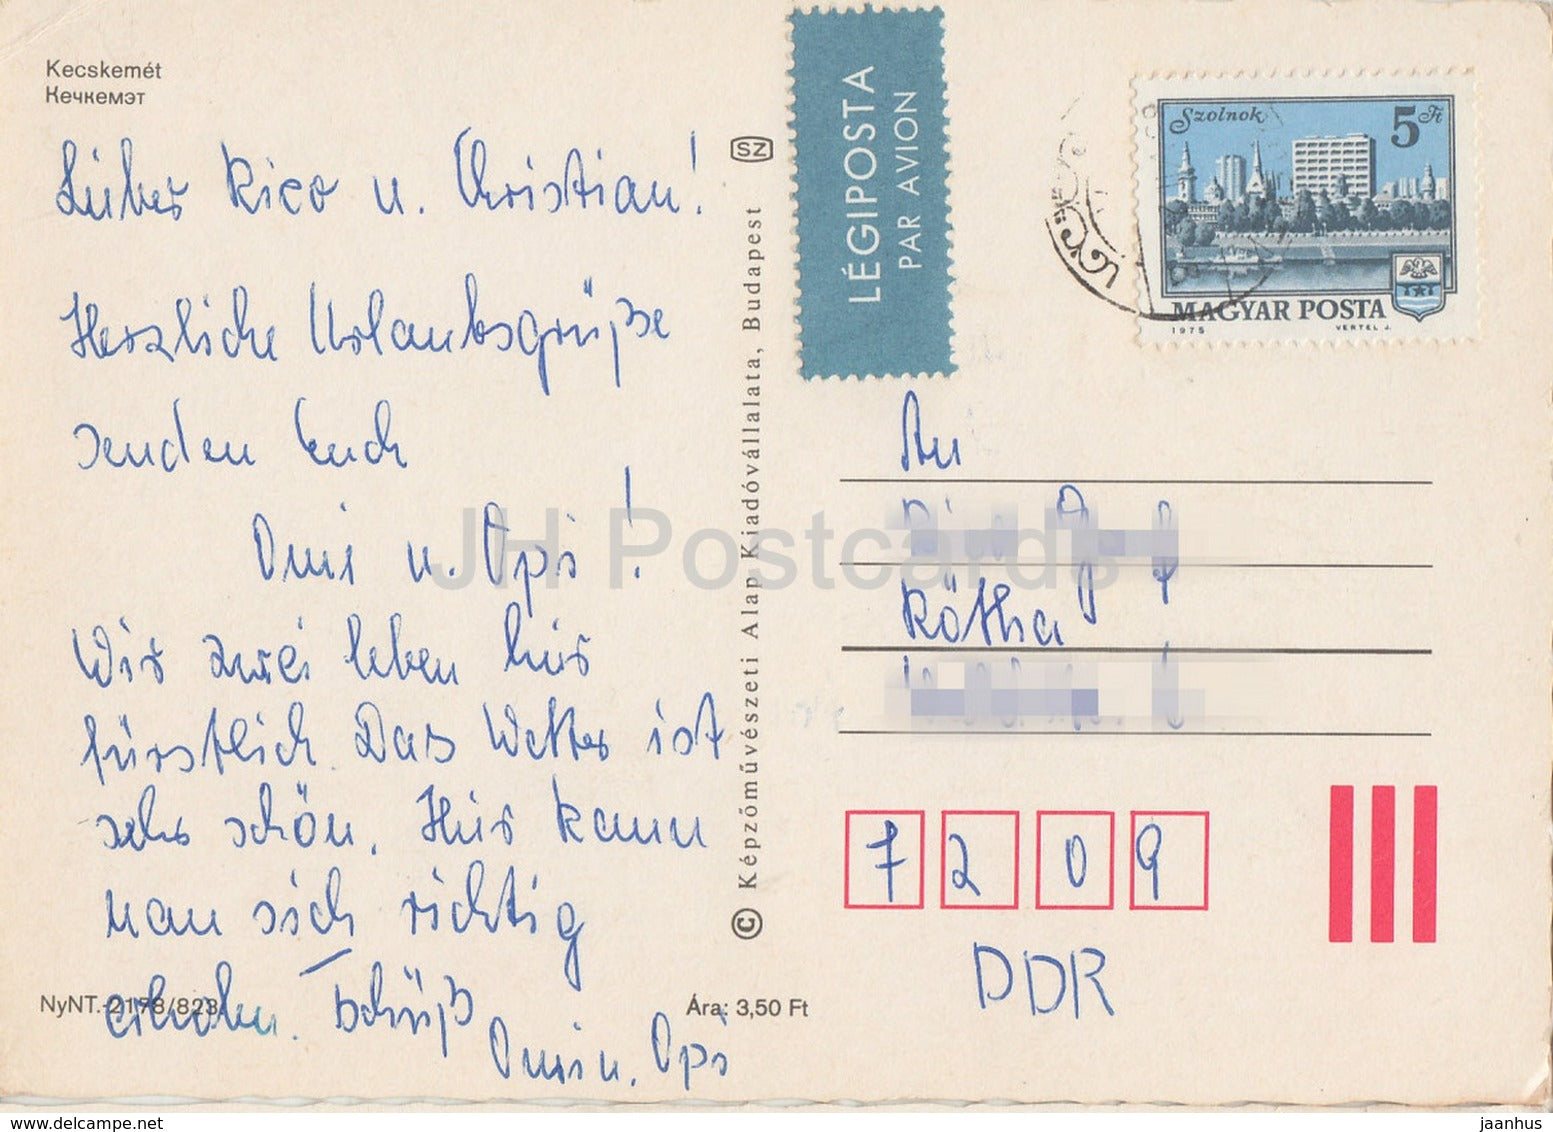 Kecskemét
Кечкемэт
Lieber Rico u. Christian!
Herzliche Urlaubsgrüße
senden Euch
Omi u. Opi!
Wir zwei leben hier
fürstlich. Das Wetter ist
sehr schön. Hier kann
man sich richtig
erholen. Tschüß
Omi u. Opi
NyNT.-2178/823
Ára: 3,50 Ft
SZ
© Képzőművészeti Alap Kiadóvállalata, Budapest
LÉGIPOSTA
PAR AVION
Szolnok
5 Ft
MAGYAR POSTA
1975 VERTEL J.
An
Rötha
7209
DDR
JH Postcards
delcampe.net
jaanhus